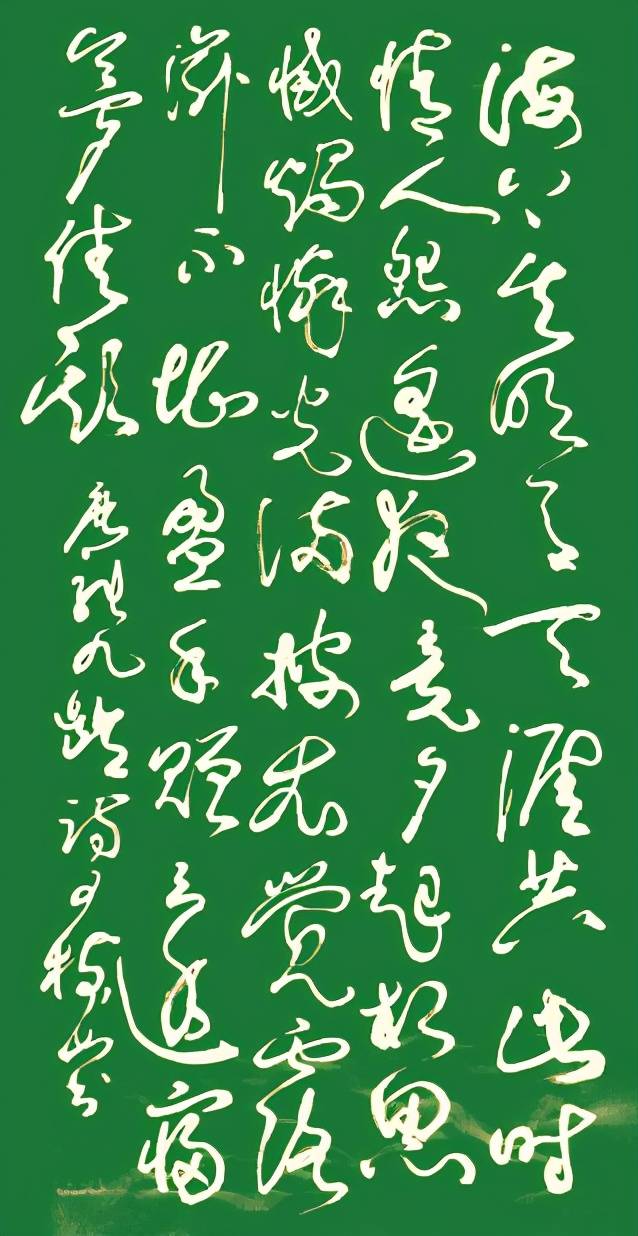 海上生明月天涯共此时
情人怨遥夜竟夕起相思
滅燭憐光满披衣觉露
滋不堪盈手赠还寝
梦佳期 唐张九龄诗